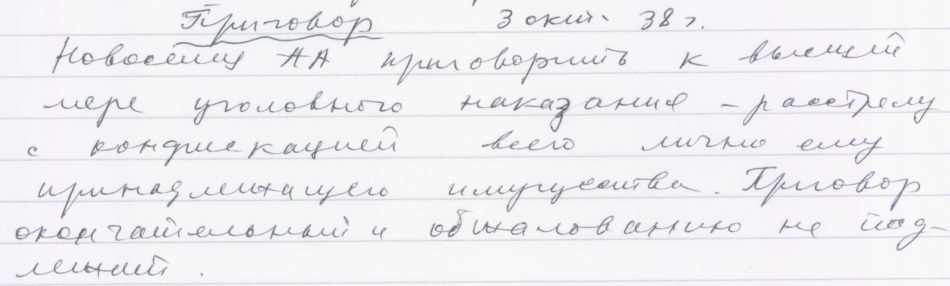 Приговор 3 окт. 38 г.
Новосёлцу АА приговорить к высшей
мере уголовного наказания – расстрелу
с конфискацией всего лично ему
принадлежащего имущества. Приговор
окончательный и обжалованию не под-
лежит.